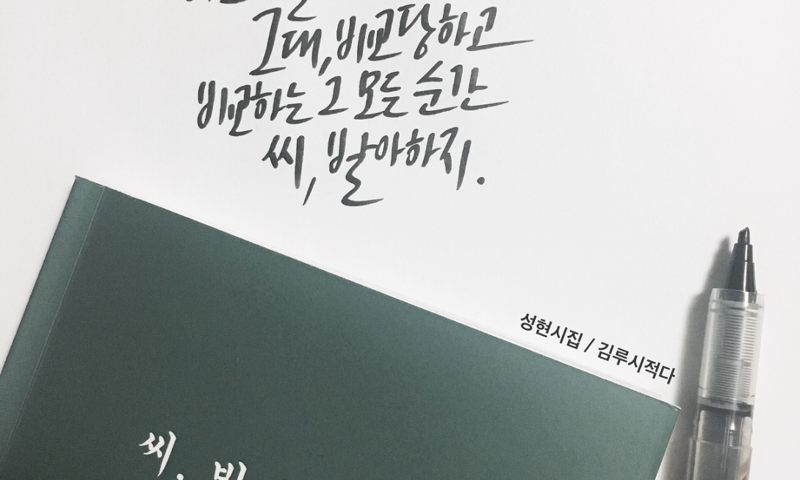 그대, 비교당하고
비교하는 그 모든 순간
씨, 발아하지.
성현시집 / 김루시적다
씨.